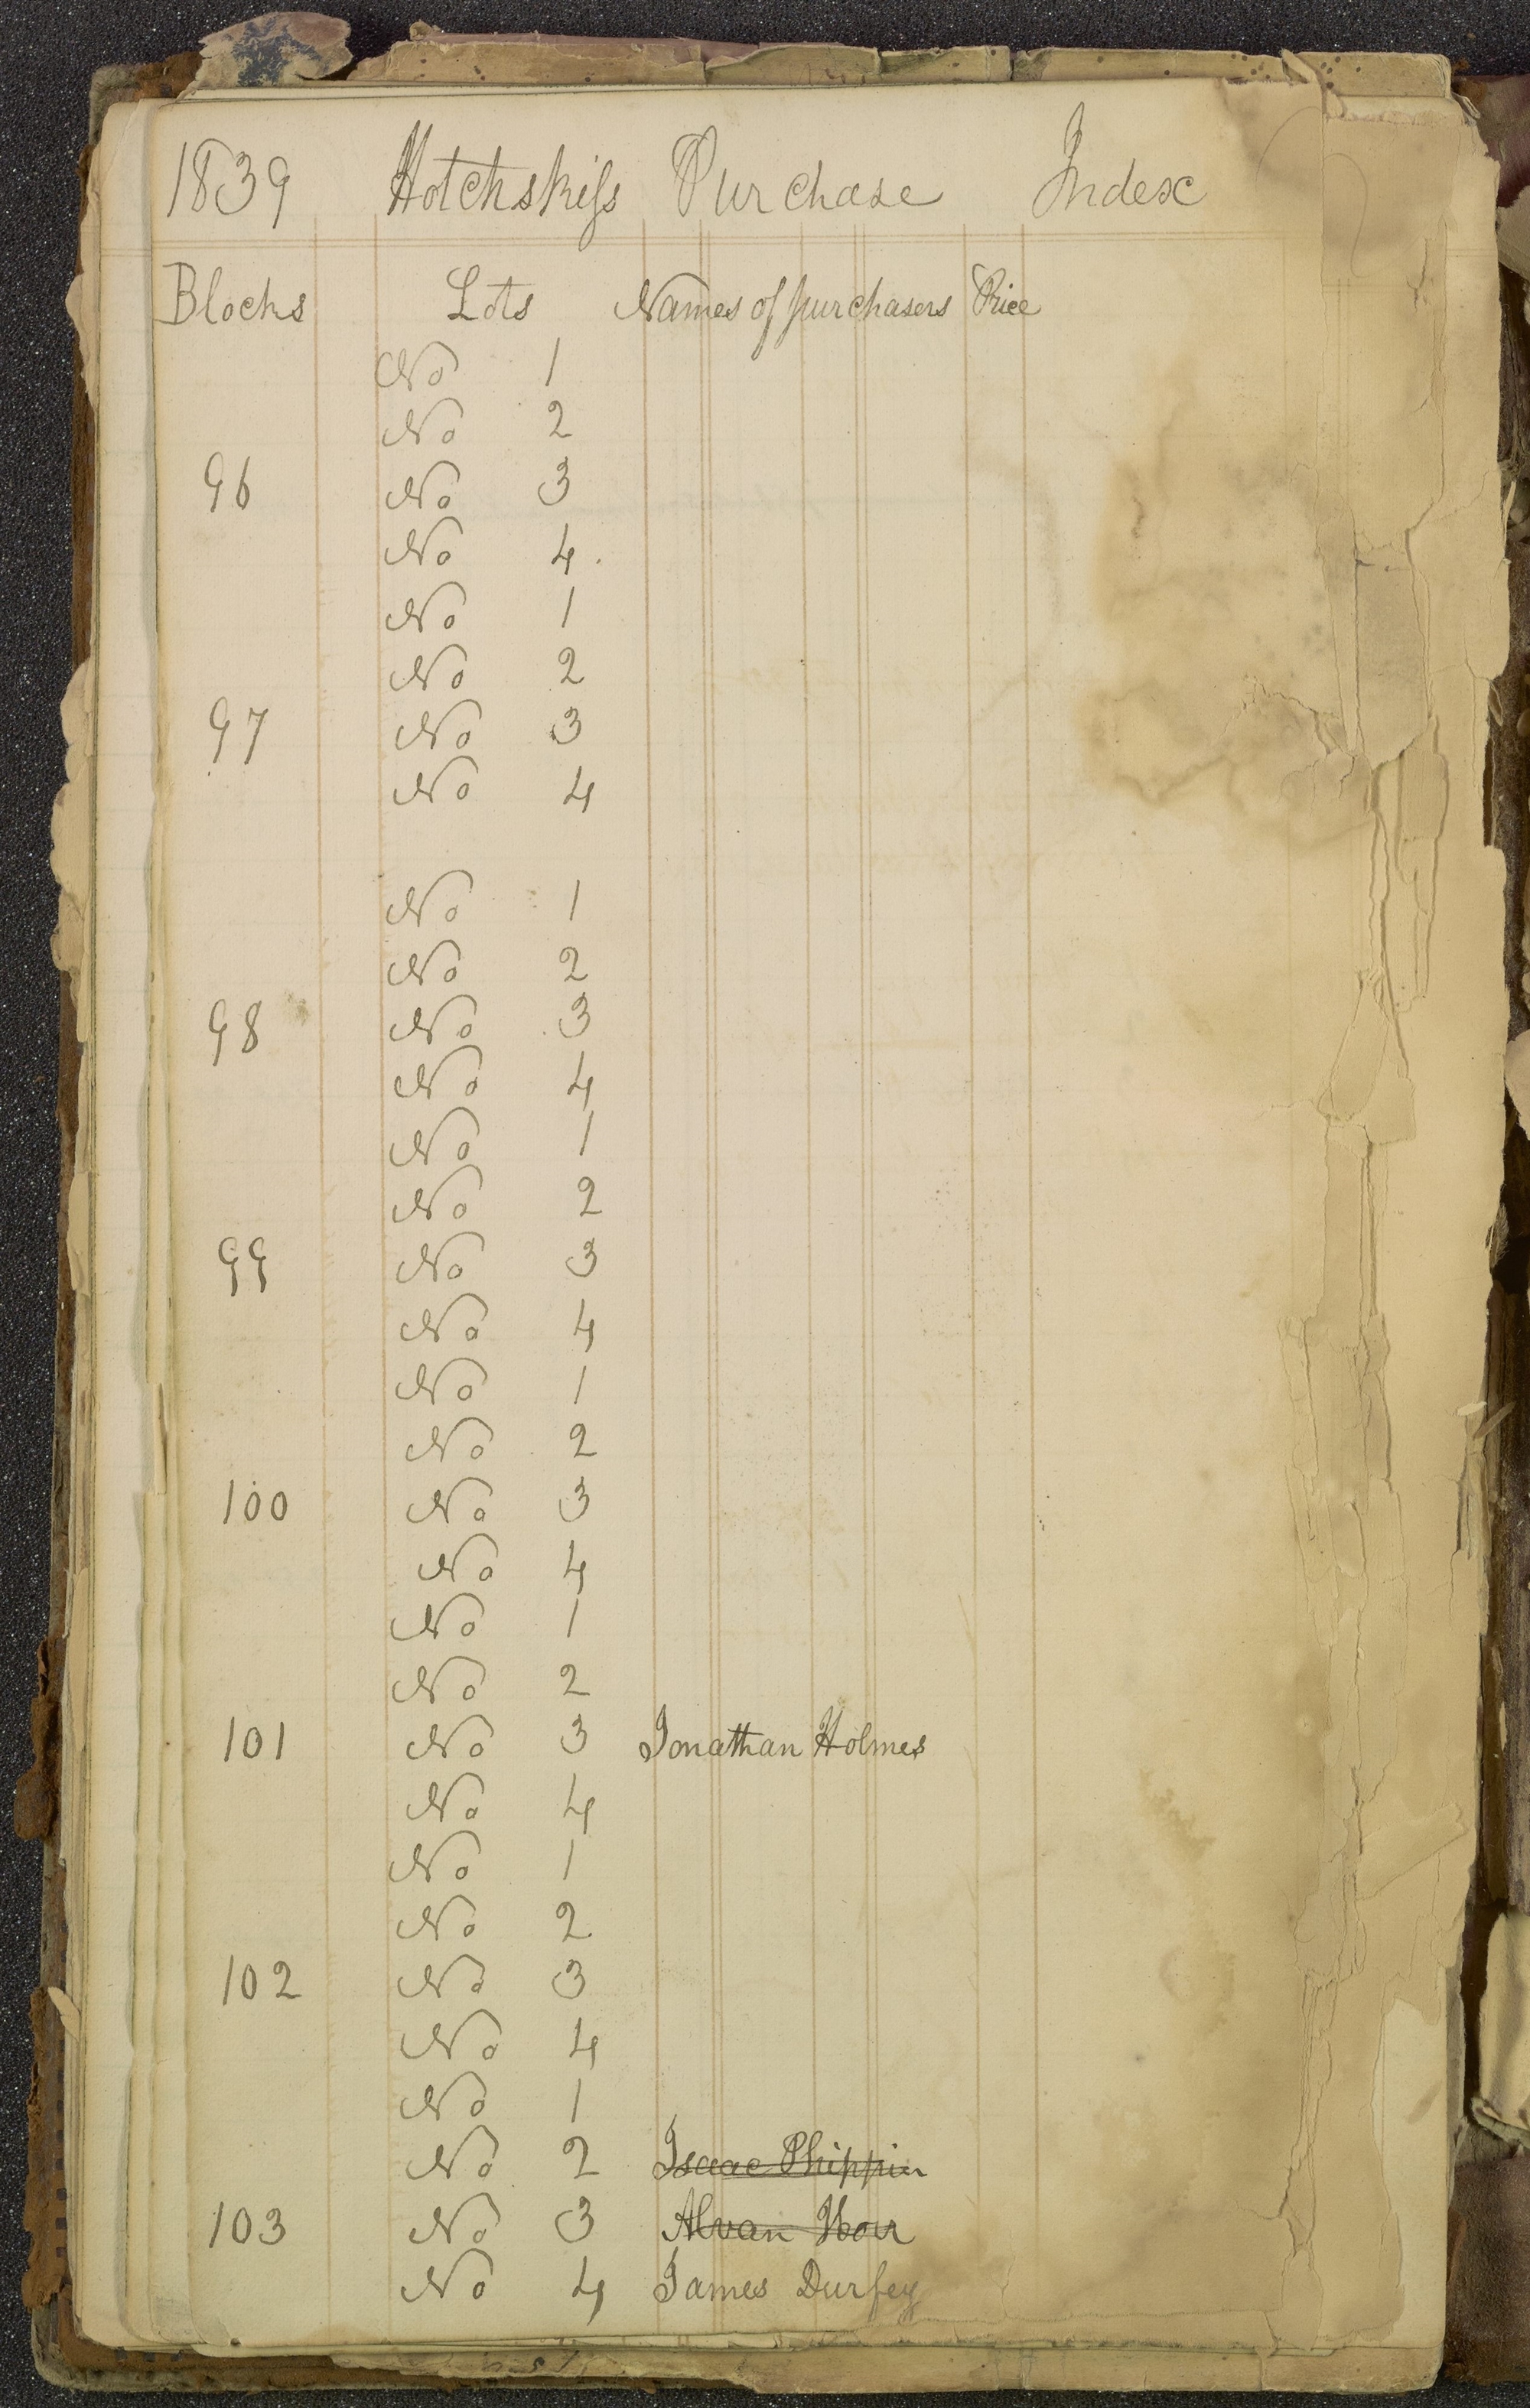 1839 Hotchskiss Purchase Index
Blocks Lots Names of purchasers Price
No 1
No 2
96 No 3
No 4
No 1
No 2
97 No 3
No 4
No 1
No 2
98 No 3
No 4
No 1
No 2
99 No 3
No 4
No 1
No 2
100 No 3
No 4
No 1
No 2
101 No 3 Jonathan Holmes
No 4
No 1
No 2
102 No 3
No 4
No 1
No 2 Isaac Phippin
103 No 3 Alvan
No 4 James Durfey